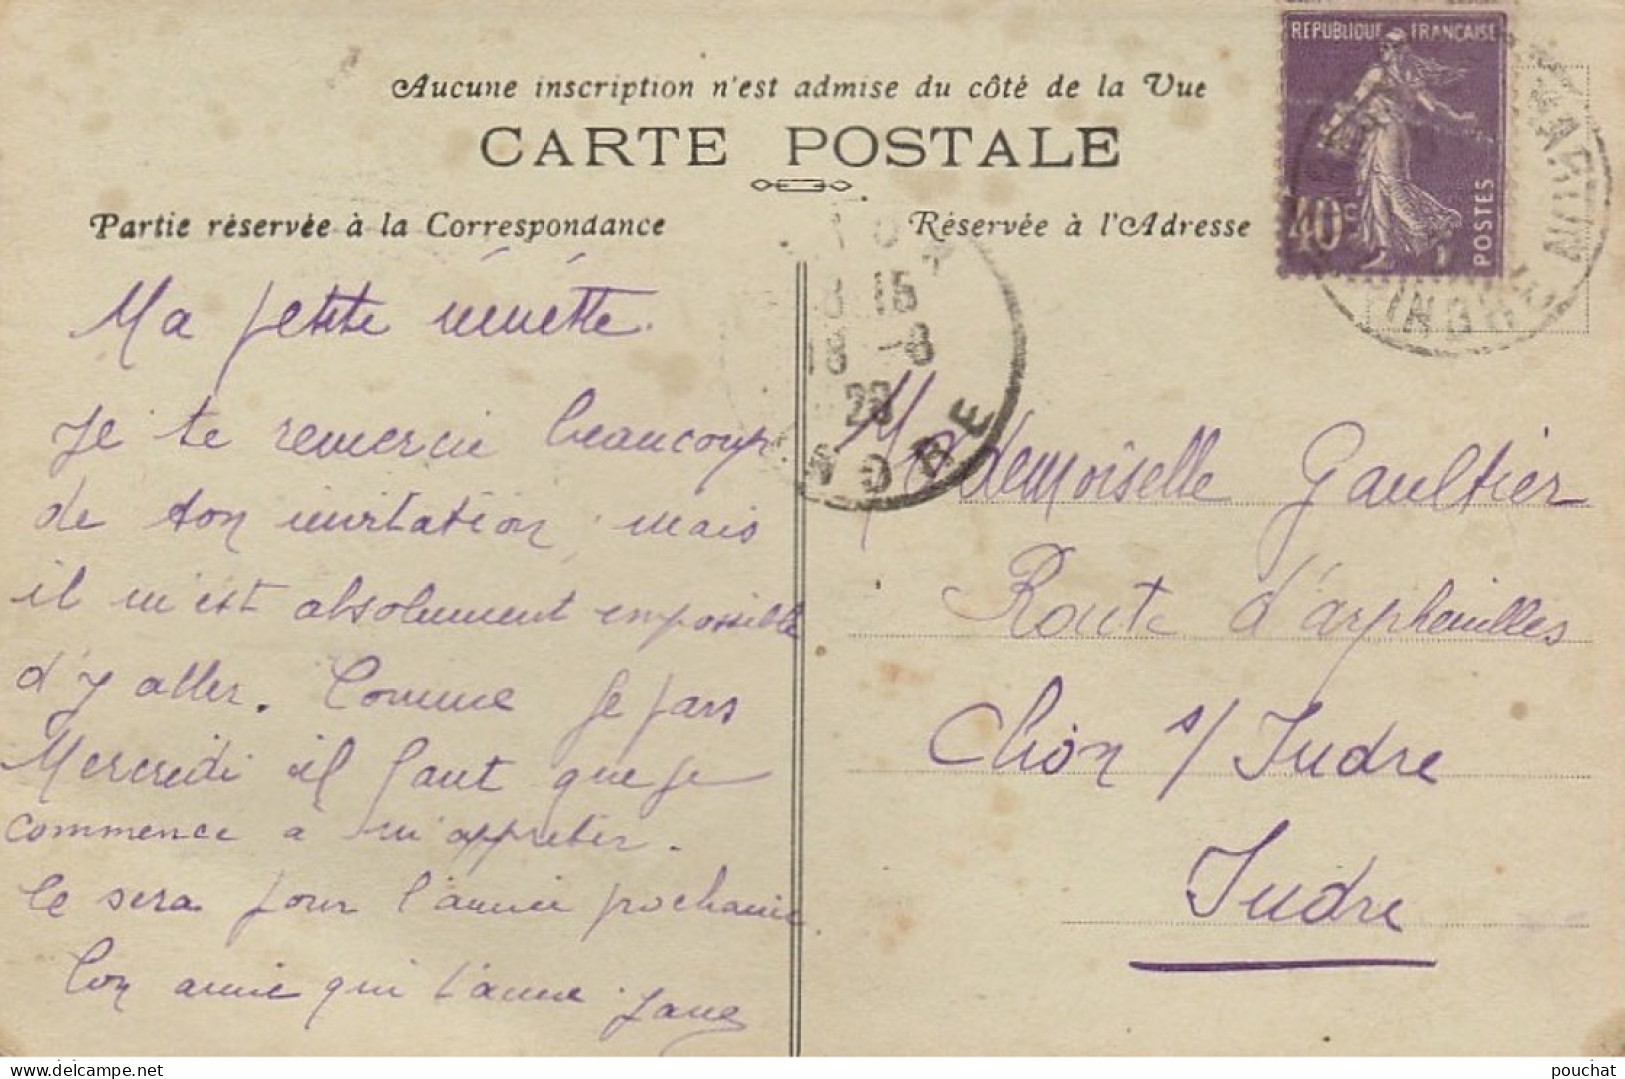 Aucune inscription n'est admise du côté de la Vue
CARTE POSTALE
Partie réservée à la Correspondance
Réservée à l'Adresse
REPUBLIQUE FRANÇAISE
40c
POSTES
15
18 -8
28
INDRE
Ma petite nénette.
Je te remercie beaucoup
de ton invitation, mais
il m'est absolument impossible
d'y aller. Comme je pars
Mercredi il faut que je
commence a m'appreter.
Ce sera pour l'année prochaine
Ton amie qui t'aime
Mademoiselle Gaultier
Route d'arpheuilles
s/ Indre
Indre
delcampe.net
pouchat